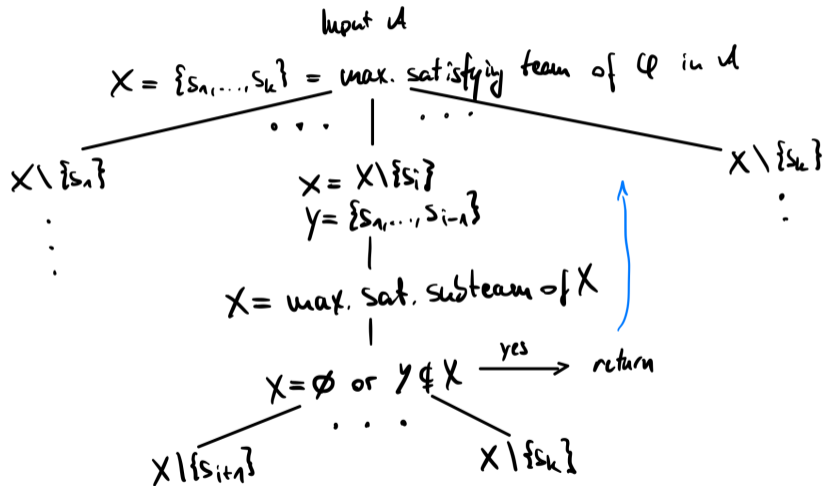 Input A
X = {s₁,...,s_k} = max. satisfying team of φ in A
... ...
X \ {s₁} X = X \ {s_i} X \ {s_k}
Y = {s₁,...,s_{i-1}}
X = max. sat. subteam of X
X = ∅ or Y ⊈ X yes return
...
X \ {s_{i+1}} X \ {s_k}